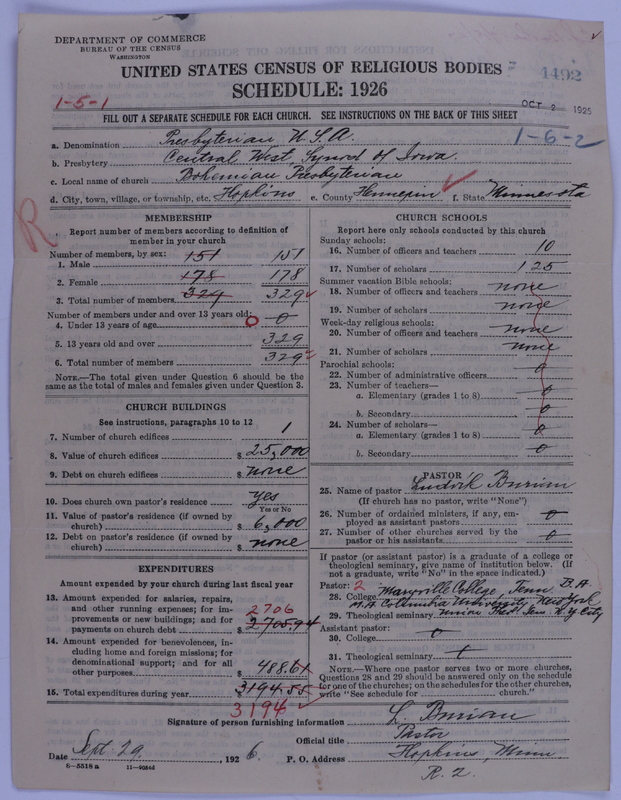 DEPARTMENT OF COMMERCE
BUREAU OF THE CENSUS
WASHINGTON
UNITED STATES CENSUS OF RELIGIOUS BODIES
1492
SCHEDULE: 1926
1-5-1
OCT 2 1925
FILL OUT A SEPARATE SCHEDULE FOR EACH CHURCH. SEE INSTRUCTIONS ON THE BACK OF THIS SHEET
1-6-2
a. Denomination Presbyterian U.S.A.
b. Presbytery Central West Synod of Iowa.
c. Local name of church Bohemian Presbyterian
d. City, town, village, or township, etc. Hopkins e. County Hennepin f. State Minnesota
R
MEMBERSHIP
Report number of members according to definition of
member in your church
Number of members, by sex:
1. Male 151 151
2. Female 178 178
3. Total number of members 329 329
Number of members under and over 13 years old:
4. Under 13 years of age 0 0
5. 13 years old and over 329
6. Total number of members 329
NOTE.—The total given under Question 6 should be
same as the total of males and females given under Question 3.
CHURCH BUILDINGS
See instructions, paragraphs 10 to 12
7. Number of church edifices 1
8. Value of church edifices $ 25,000
9. Debt on church edifices $ none
10. Does church own pastor's residence yes
Yes or No
11. Value of pastor's residence (if owned by
church) $ 6,000
12. Debt on pastor's residence (if owned by
church) $ none
EXPENDITURES
Amount expended by your church during last fiscal year
13. Amount expended for salaries, repairs,
and other running expenses; for im-
provements or new buildings; and for
payments on church debt $ 2705.94
2706
14. Amount expended for benevolences, in-
cluding home and foreign missions; for
denominational support; and for all
other purposes $ 488.61
15. Total expenditures during year $ 3194.55
3194
CHURCH SCHOOLS
Report here only schools conducted by this church
Sunday schools:
16. Number of officers and teachers 10
17. Number of scholars 125
Summer vacation Bible schools:
18. Number of officers and teachers none
19. Number of scholars none
Week-day religious schools:
20. Number of officers and teachers none
21. Number of scholars none
Parochial schools:
22. Number of administrative officers 0
23. Number of teachers—
a. Elementary (grades 1 to 8) 0
b. Secondary 0
24. Number of scholars—
a. Elementary (grades 1 to 8) 0
b. Secondary 0
PASTOR
25. Name of pastor Ludvik Burian
(If church has no pastor, write "None")
26. Number of ordained ministers, if any, em-
ployed as assistant pastors 0
27. Number of other churches served by the
pastor or his assistants 0
If pastor (or assistant pastor) is a graduate of a college or
theological seminary, give name of institution below. (If
not a graduate, write "No" in the space indicated.)
Pastor: 2
28. College Maryville College, Tenn B.A.
M.A. Columbia University, New York
29. Theological seminary Union Theol. Sem. N.Y. City
Assistant pastor:
30. College 0
31. Theological seminary 0
NOTE.—Where one pastor serves two or more churches,
Questions 28 and 29 should be answered only on the schedule
for one of the churches; on the schedules for the other churches,
write "See schedule for church."
Signature of person furnishing information L. Burian
Official title Pastor
Date Sept. 29, 1926. P. O. Address Hopkins, Minn
R. 2.
8—5518 a